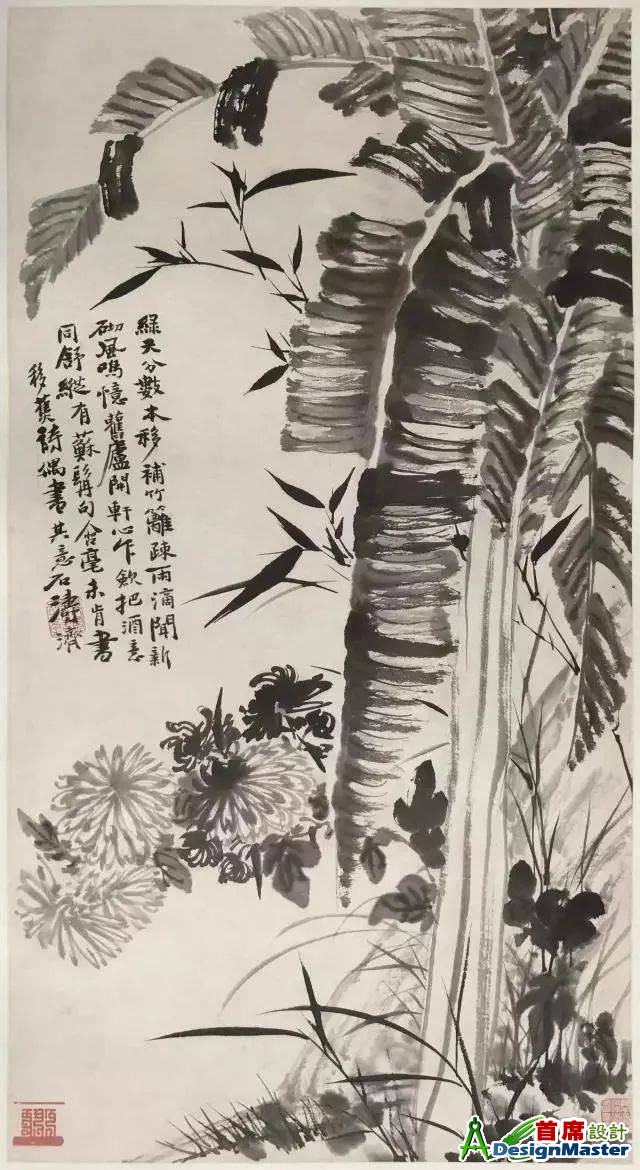 綠天分數本移補竹籬疎雨滴聞新
砌風鳴憶舊廬開軒心乍歛把酒意
同舒縱有蘇髯句含毫未肯書
移蕉詩偶書其意石濤濟
首席設計
ADesignMaster